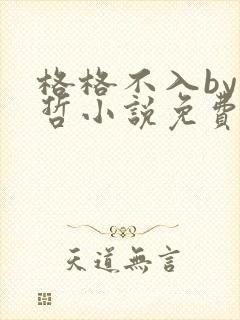 格格不入by
哲小説免費
天道無言